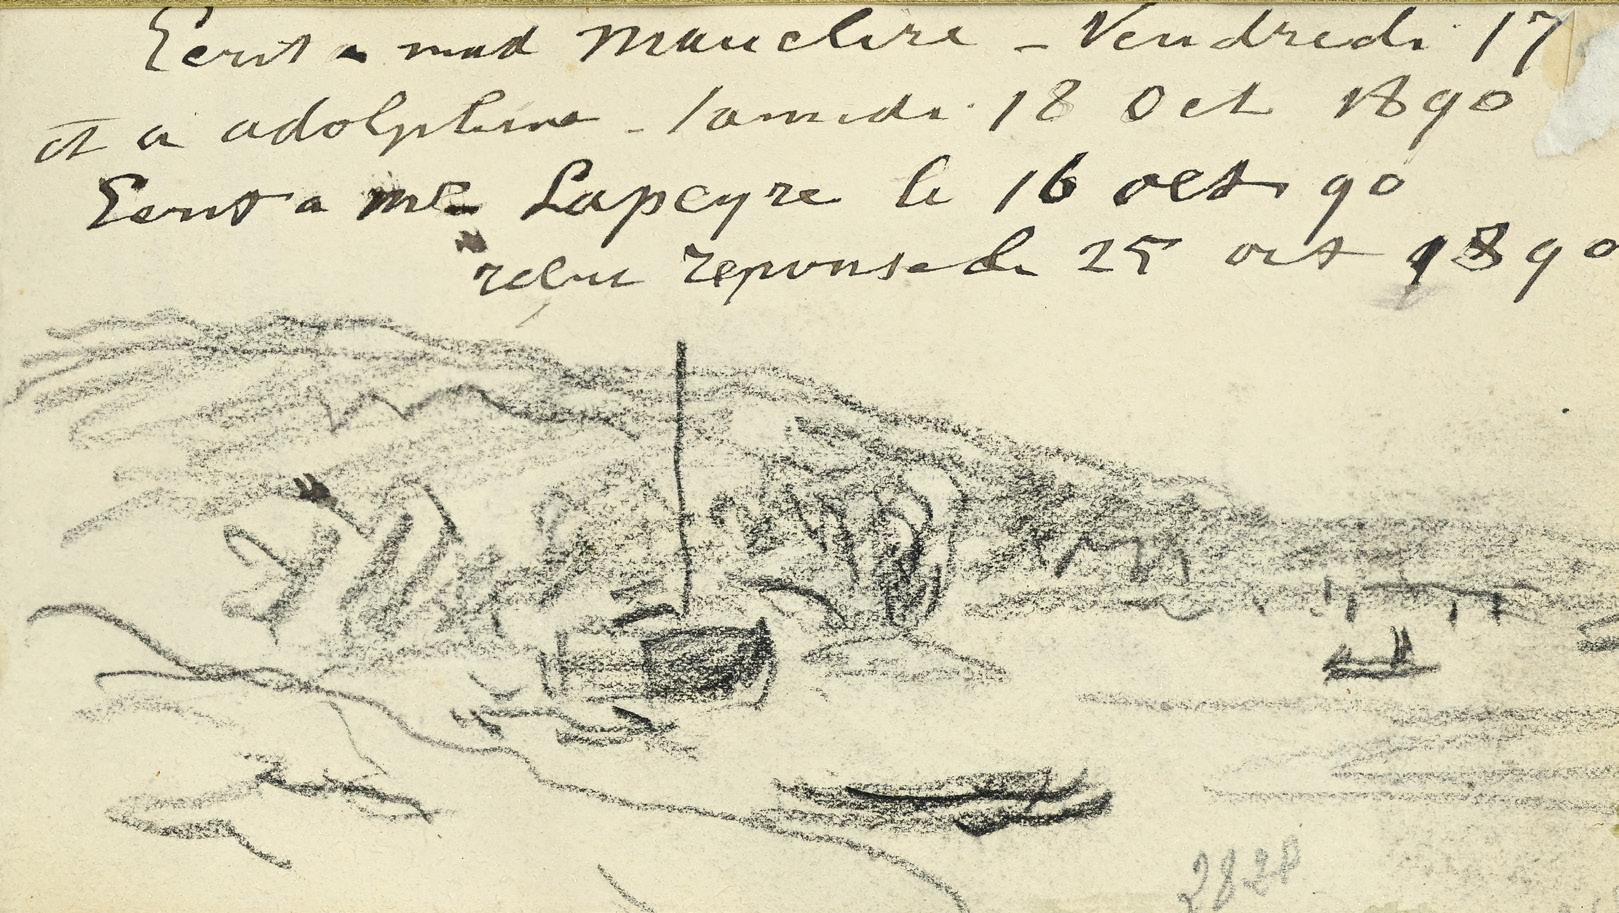 Ecrit a mad Mauclere - Vendredi 17
et a adolphine - Samedi 18 Oct 1890
Ecrit a me Lapeyre le 16 oct 90
recu reponse du 25 oct 1890
2828